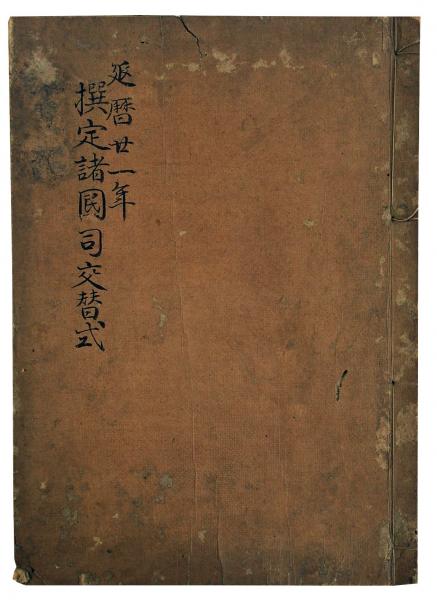 延暦廿一年
撰定諸圀司交替式